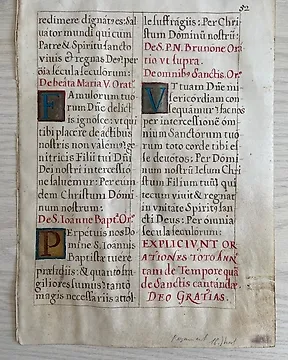 52
redimere dignatᵉes: Sal
uator mundi qui cum
Patre & Spiritu sancto
viuis & regnas Deᵒ: per
oīa secula seculorum:
De beata Maria V. Orat°
FAmulorum tuo
rum Dn̄e delic
tis ignosce: vt qui
tibi placere de actibus
nostris non valem⁹: ge
nitricis Filii tui Dn̄i
Dei nostri intercessio
ne saluemur: Per eum
dem Christum Domi
num nostrum:
De S. Ioanne Bapt. Or°
PErpetuis nos Do
mine S. Ioannis
Baptistæ tuere
præsidiis: & quanto fra
giliores sumus: tanto
magis necessariis attol
le suffragiis: Per Chri
stum Dominū nostrū:
De S. P. N. Brunone Ora
tio vt supra.
De omnibᵒ Sanctis. Or°
VT tuam Dn̄e mi
sericordiam con
sequamur: fac nos
per intercessionē om
nium Sanctorum tuo
rum toto corde tibi es
se deuotos: Per Domi
num nostrū Iesum Chri
stum Filium tuū: qui
tecum viuit & regnat
in vnitate Spiritᵒ san
cti Deus: Per omnia
secula seculorum:
EXPLICIVNT OR
ATIONES TOTO ANN
tam de Tempore quā
de Sanctis cantandæ
DEO GRATIAS.